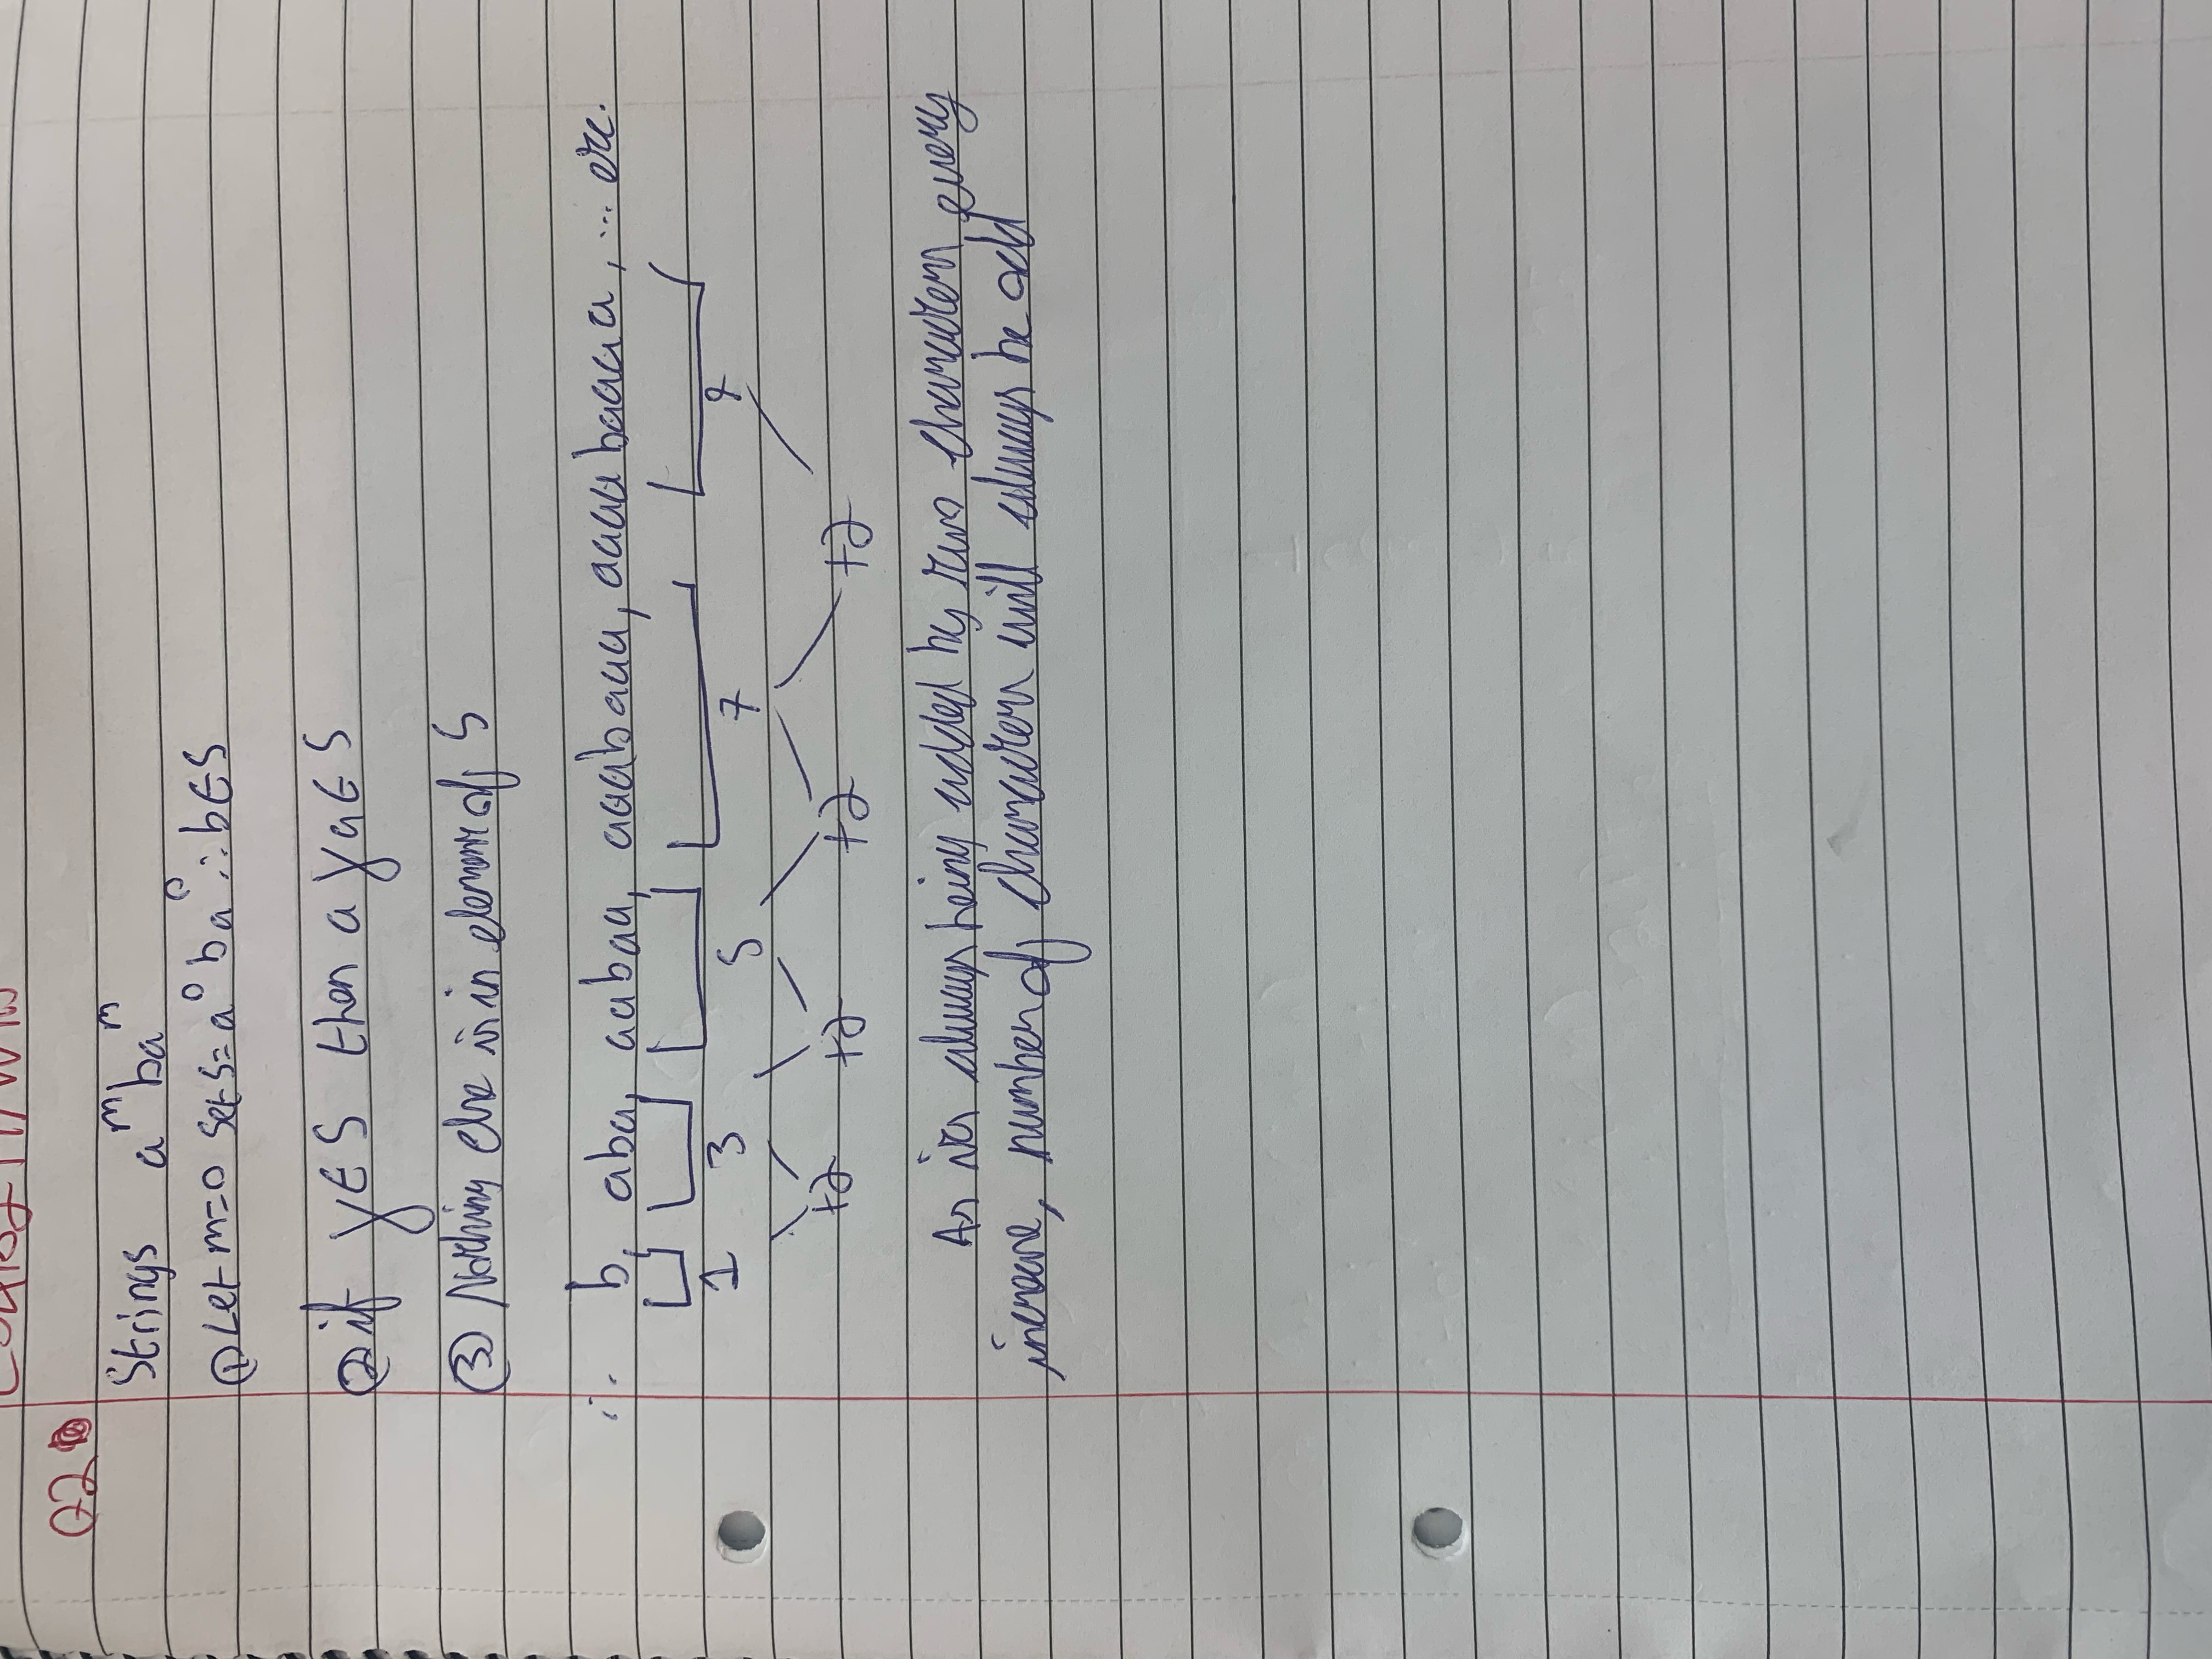 Q2
Strings aᵐbaᵐ
① Let m=0 Set S= a⁰ba⁰ ∴ b∈S
② if y∈S then aya∈S
③ Nothing else is in element of S
∴ b, aba, aabaa, aaabaaa, aaaabaaaa, ... etc.
1 3 5 7 9
+2 +2 +2 +2
As it's always being added by two characters every
increase, number of characters will always be odd